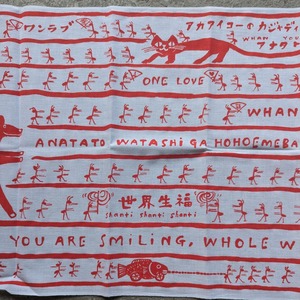 ワンラブ
アカワイコーのカジャディ
WHAM YOU
アナタ
ONE LOVE
WHAN
ANATATO WATASHI GA HOHOEMEBA
世界生福
shanti shanti shanti
YOU ARE SMiLiNG, WHOLE W